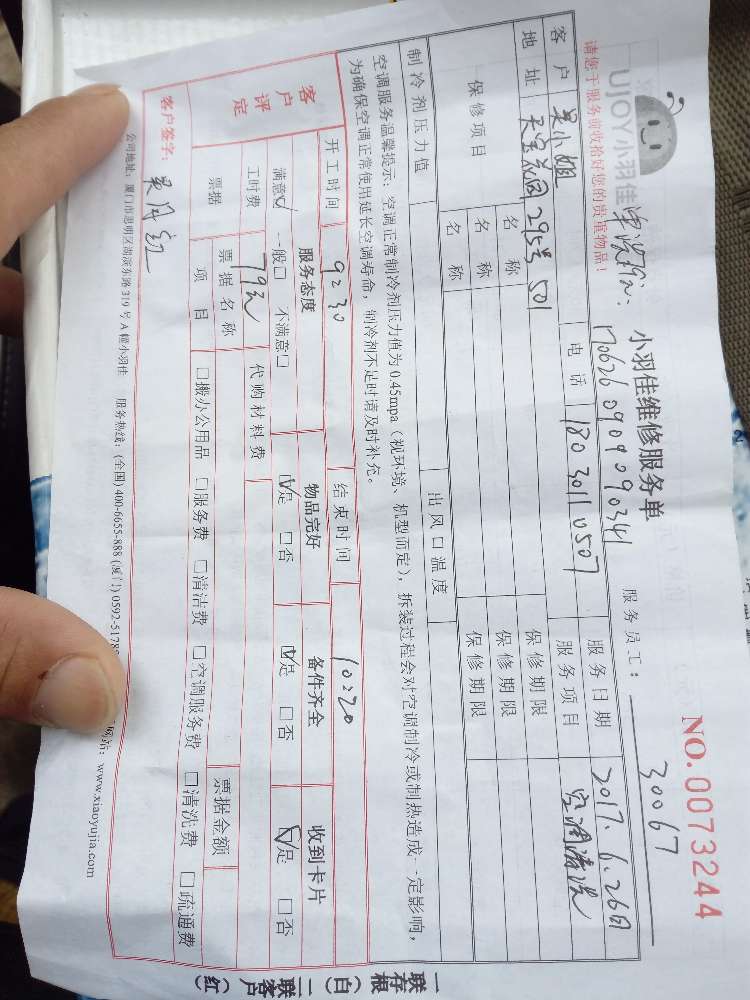 UJOY小羽佳
小羽佳维修服务单
NO.0073244
170626090909034
服务员工：30067
请您于服务前收拾好您的贵重物品！
客户 吴小姐 电话 18030110507 服务日期 2017.6.26日
地址 天宝花园295号501 服务项目 空调清洗
保修项目 名称 保修期限
名称 保修期限
名称 保修期限
制冷剂压力值 出风口温度
空调服务温馨提示：空调正常制冷剂压力值为0.45mpa（视环境、机型而定），拆装过程会对空调制冷或制热造成一定影响，
为确保空调正常使用延长空调寿命，制冷剂不足时请及时补充。
开工时间 9:30 结束时间 10:20
客户评定 服务态度 物品完好 备件齐全 收到卡片
满意☑ 一般□ 不满意□ ☑是 □否 ☑是 □否 ☑是 □否
工时费 79元 代购材料费
票据 票据名称 票据金额
项目 □搬办公用品 □服务费 □清洁费 □空调服务费 □清洗费 □疏通费
客户签字：
公司地址：厦门市思明区湖滨东路319号A幢小羽佳 服务热线：(全国)400-6655-888 (厦门)0592-5178 网站：www.xiaoyujia.com
一联存根（白）二联客户（红）